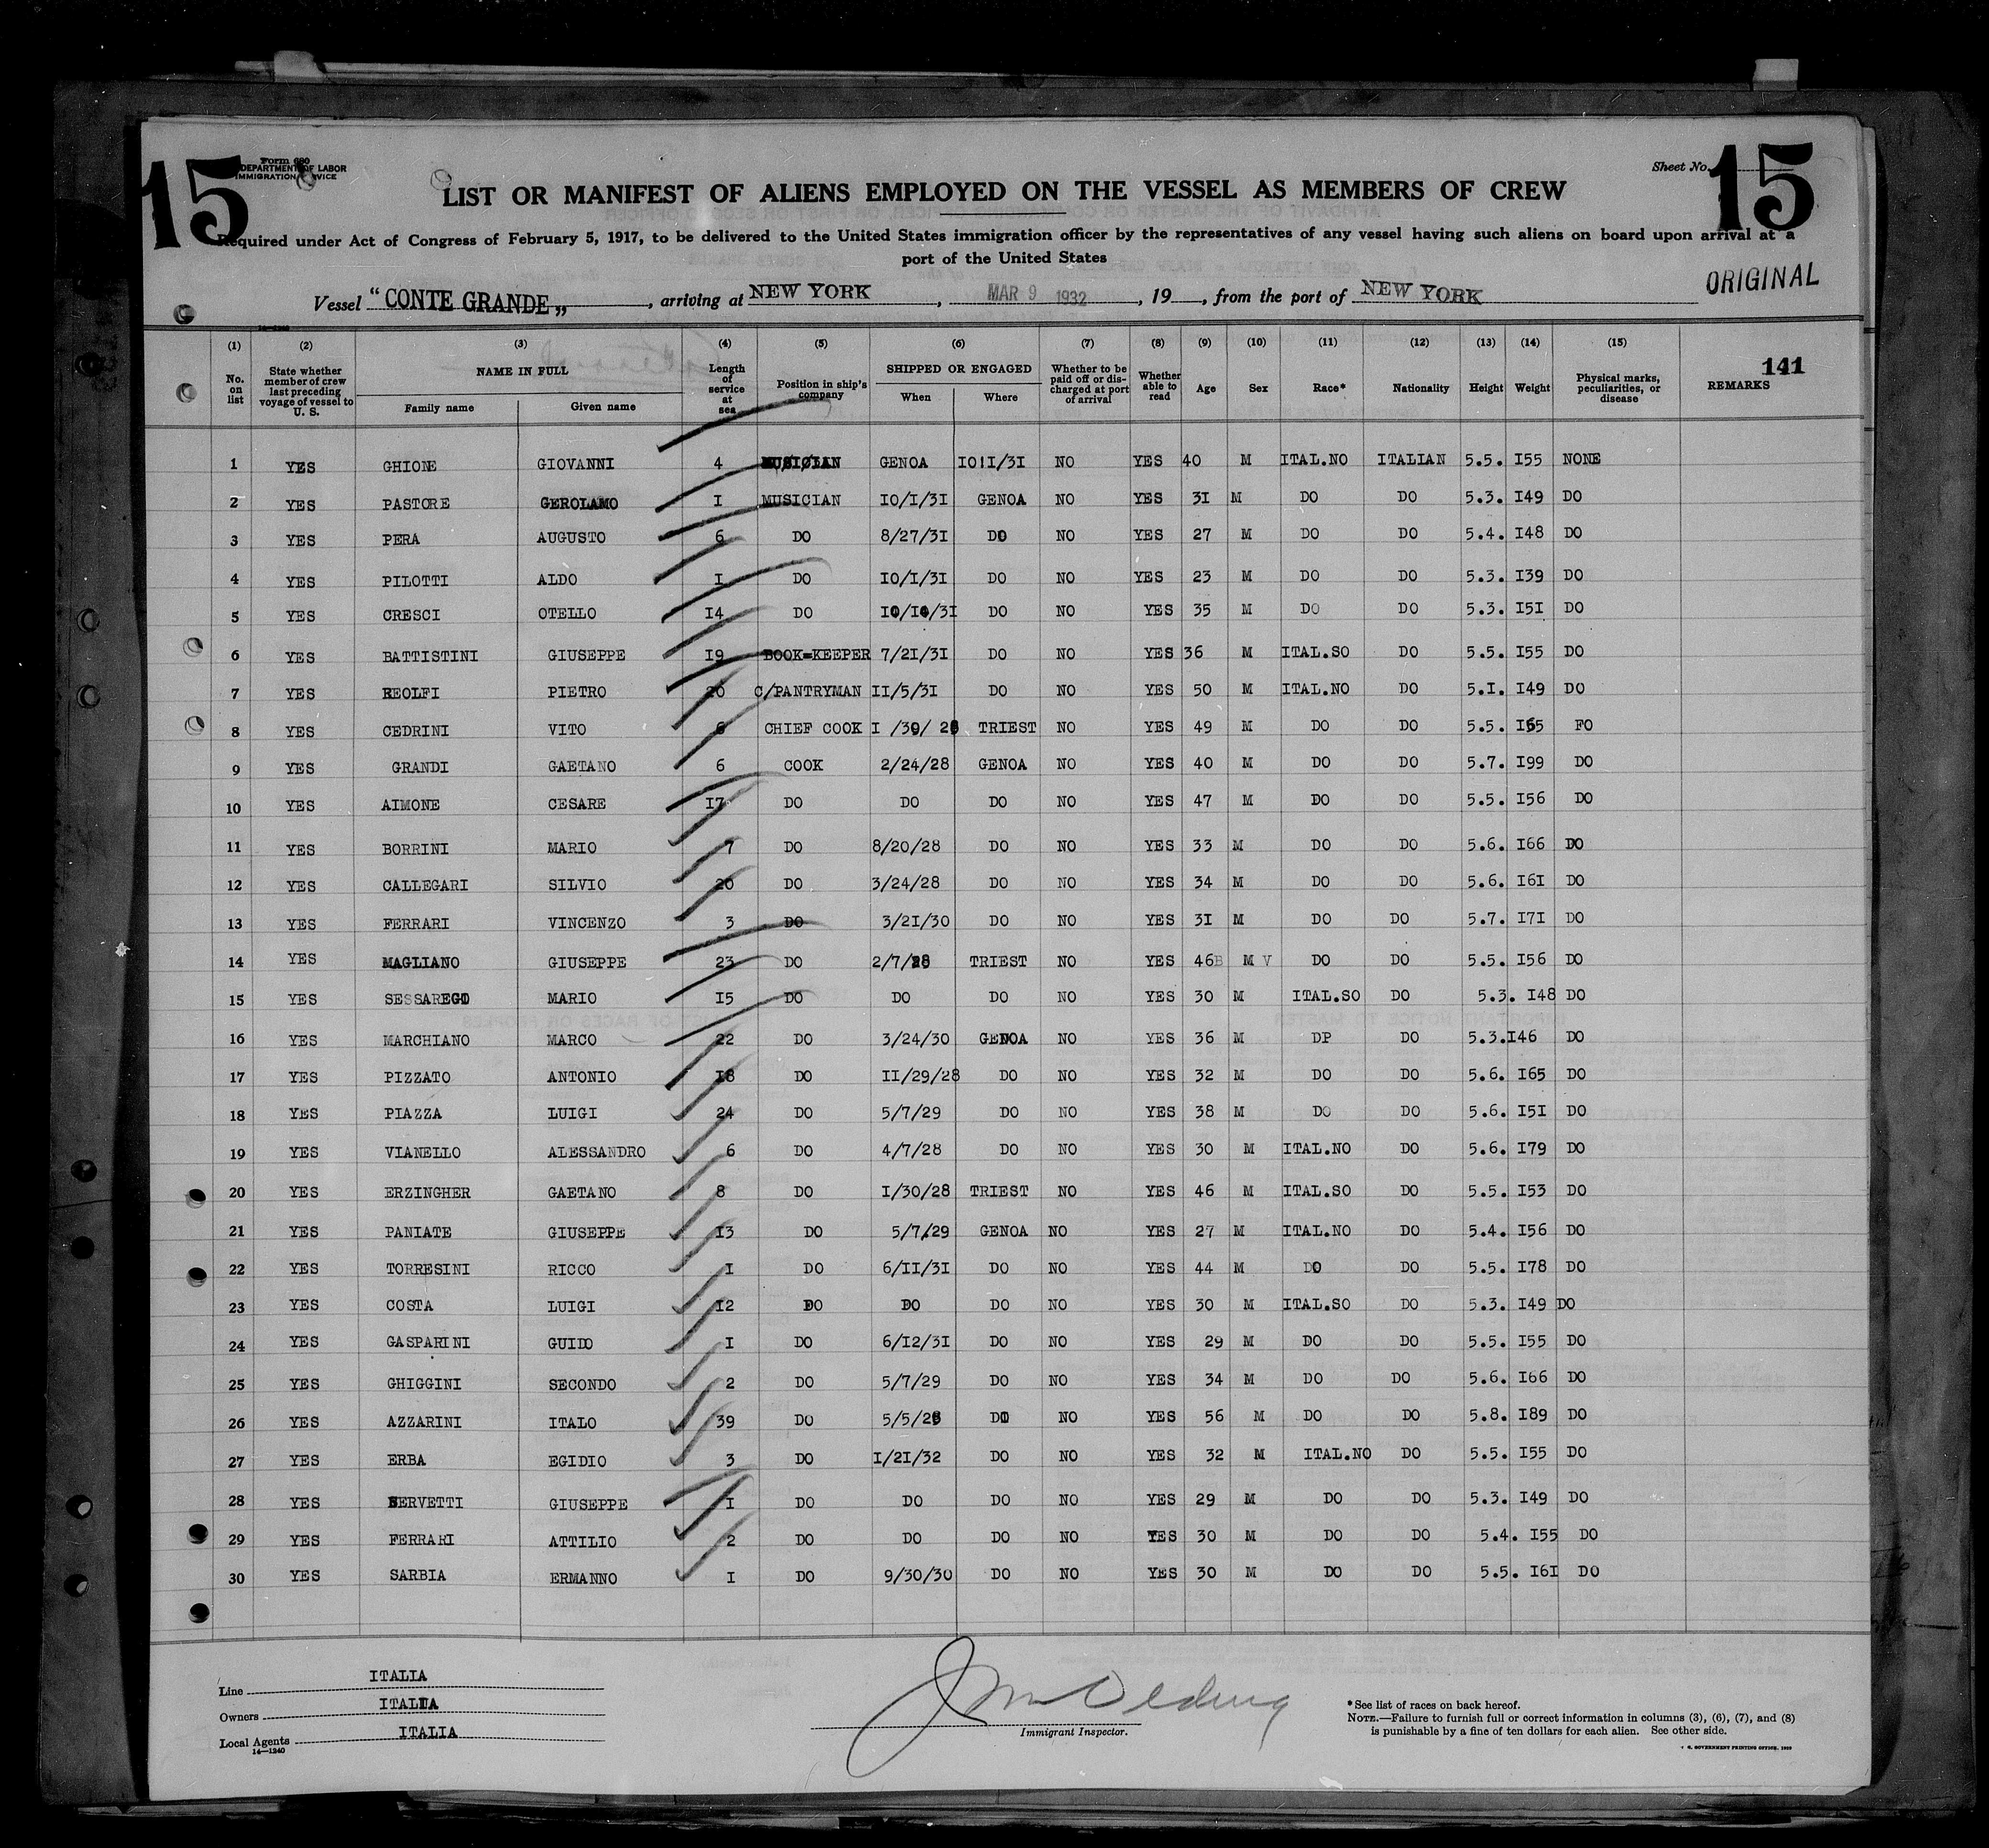 15
Form 680
DEPARTMENT OF LABOR
IMMIGRATION SERVICE
Sheet No. 15
LIST OR MANIFEST OF ALIENS EMPLOYED ON THE VESSEL AS MEMBERS OF CREW
Required under Act of Congress of February 5, 1917, to be delivered to the United States immigration officer by the representatives of any vessel having such aliens on board upon arrival at a
port of the United States
ORIGINAL
Vessel "CONTE GRANDE„, arriving at NEW YORK, MAR 9 1932, 19, from the port of NEW YORK
14—1240
(1) (2) (3) (4) (5) (6) (7) (8) (9) (10) (11) (12) (13) (14) (15) 141
No. on list State whether member of crew last preceding voyage of vessel to U. S. NAME IN FULL Family name Given name Length of service at sea Position in ship's company SHIPPED OR ENGAGED When Where Whether to be paid off or discharged at port of arrival Whether able to read Age Sex Race* Nationality Height Weight Physical marks, peculiarities, or disease REMARKS
1 YES GHIONE GIOVANNI 4 MUSICIAN GENOA IO!I/3I NO YES 40 M ITAL.NO ITALIAN 5.5. I55 NONE
2 YES PASTORE GEROLAMO I MUSICIAN IO/I/3I GENOA NO YES 3I M DO DO 5.3. I49 DO
3 YES PERA AUGUSTO 6 DO 8/27/3I DO NO YES 27 M DO DO 5.4. I48 DO
4 YES PILOTTI ALDO I DO IO/I/3I DO NO YES 23 M DO DO 5.3. I39 DO
5 YES CRESCI OTELLO I4 DO IO/I0/3I DO NO YES 35 M DO DO 5.3. I5I DO
6 YES BATTISTINI GIUSEPPE I9 BOOK=KEEPER 7/2I/3I DO NO YES 36 M ITAL.SO DO 5.5. I55 DO
7 YES REOLFI PIETRO 20 C/PANTRYMAN II/5/3I DO NO YES 50 M ITAL.NO DO 5.I. I49 DO
8 YES CEDRINI VITO 6 CHIEF COOK I /30/ 28 TRIEST NO YES 49 M DO DO 5.5. I65 FO
9 YES GRANDI GAETANO 6 COOK 2/24/28 GENOA NO YES 40 M DO DO 5.7. I99 DO
10 YES AIMONE CESARE I7 DO DO DO NO YES 47 M DO DO 5.5. I56 DO
11 YES BORRINI MARIO 7 DO 8/20/28 DO NO YES 33 M DO DO 5.6. I66 DO
12 YES CALLEGARI SILVIO 20 DO 3/24/28 DO NO YES 34 M DO DO 5.6. I6I DO
13 YES FERRARI VINCENZO 3 DO 3/2I/30 DO NO YES 3I M DO DO 5.7. I7I DO
14 YES MAGLIANO GIUSEPPE 23 DO 2/7/28 TRIEST NO YES 46B M V DO DO 5.5. I56 DO
15 YES SESSAREGO MARIO I5 DO DO DO NO YES 30 M ITAL.SO DO 5.3. I48 DO
16 YES MARCHIANO MARCO 22 DO 3/24/30 GENOA NO YES 36 M DP DO 5.3.I46 DO
17 YES PIZZATO ANTONIO I8 DO II/29/28 DO NO YES 32 M DO DO 5.6. I65 DO
18 YES PIAZZA LUIGI 24 DO 5/7/29 DO NO YES 38 M DO DO 5.6. I5I DO
19 YES VIANELLO ALESSANDRO 6 DO 4/7/28 DO NO YES 30 M ITAL.NO DO 5.6. I79 DO
20 YES ERZINGHER GAETANO 8 DO I/30/28 TRIEST NO YES 46 M ITAL.SO DO 5.5. I53 DO
21 YES PANIATE GIUSEPPE I3 DO 5/7/29 GENOA NO YES 27 M ITAL.NO DO 5.4. I56 DO
22 YES TORRESINI RICCO I DO 6/II/3I DO NO YES 44 M DO DO 5.5. I78 DO
23 YES COSTA LUIGI I2 DO DO DO NO YES 30 M ITAL.SO DO 5.3. I49 DO
24 YES GASPARINI GUIDO I DO 6/I2/3I DO NO YES 29 M DO DO 5.5. I55 DO
25 YES GHIGGINI SECONDO 2 DO 5/7/29 DO NO YES 34 M DO DO 5.6. I66 DO
26 YES AZZARINI ITALO 39 DO 5/5/28 DO NO YES 56 M DO DO 5.8. I89 DO
27 YES ERBA EGIDIO 3 DO I/2I/32 DO NO YES 32 M ITAL.NO DO 5.5. I55 DO
28 YES SERVETTI GIUSEPPE I DO DO DO NO YES 29 M DO DO 5.3. I49 DO
29 YES FERRARI ATTILIO 2 DO DO DO NO YES 30 M DO DO 5.4. I55 DO
30 YES SARBIA ERMANNO I DO 9/30/30 DO NO YES 30 M DO DO 5.5. I6I DO
Line ITALIA
Owners ITALIA
Local Agents ITALIA
14—1240
Immigrant Inspector.
*See list of races on back hereof.
NOTE.—Failure to furnish full or correct information in columns (3), (6), (7), and (8)
is punishable by a fine of ten dollars for each alien. See other side.
GOVERNMENT PRINTING OFFICE